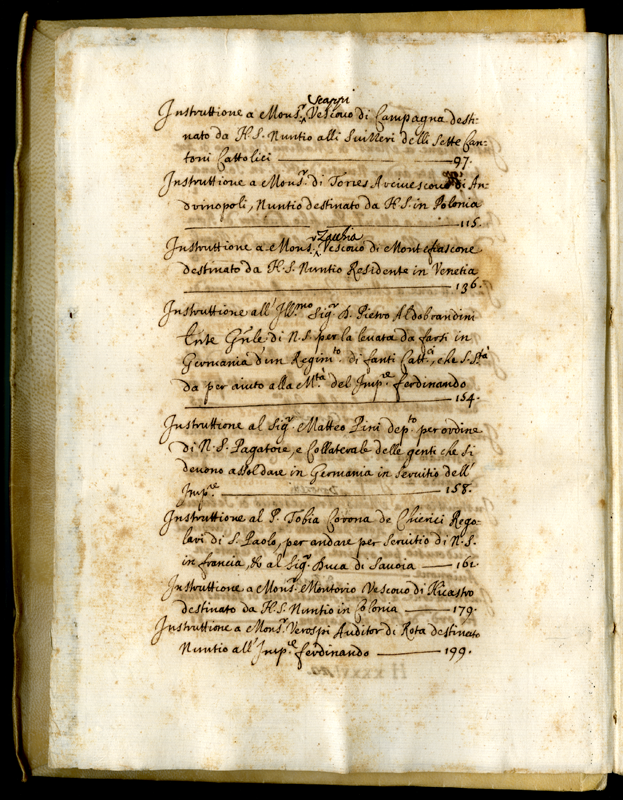 Scappi
Instruttione a Mons.r Vescovo di Campagna desti-
nato da N.S. Nuntio alli Suizzeri delli Sette Can-
toni Cattolici 97.
Instruttione a Mons.r di Torres Arcivescovo di An-
drinopoli, Nuntio destinato da N.S. in Polonia
115.
Zacchia
Instruttione a Mons.r Vescovo di Montefiascone
destinato da N.S. Nuntio Residente in Venetia
136.
Instruttione all' Ill.mo Sig.r D. Pietro Aldobrandini
Tñte Gñle di N.S. per la levata da farsi in
Germania d'un Regim.to di fanti Catt.ci, che S.S.tà
da per aiuto alla M.tà del Imp.re ferdinando
154.
Instruttione al Sig.r Matteo Pini dep.to per ordine
di N.S. Pagatore, e Collaterale delle genti che si
devono assoldare in Germania in servitio dell'
Imp.re 158.
Instruttione al P. Tobia Corona de Chierici Rego-
lari di S. Paolo, per andare per servitio di N.S.
in francia, & al Sig.r Duca di Savoia 161.
Instruttione a Mons.r Montorio Vescovo di Nicastro
destinato da N.S. Nuntio in Colonia 179.
Instruttione a Mons.r Verospi Auditor di Rota destinato
Nuntio all' Imp.re ferdinando 199.